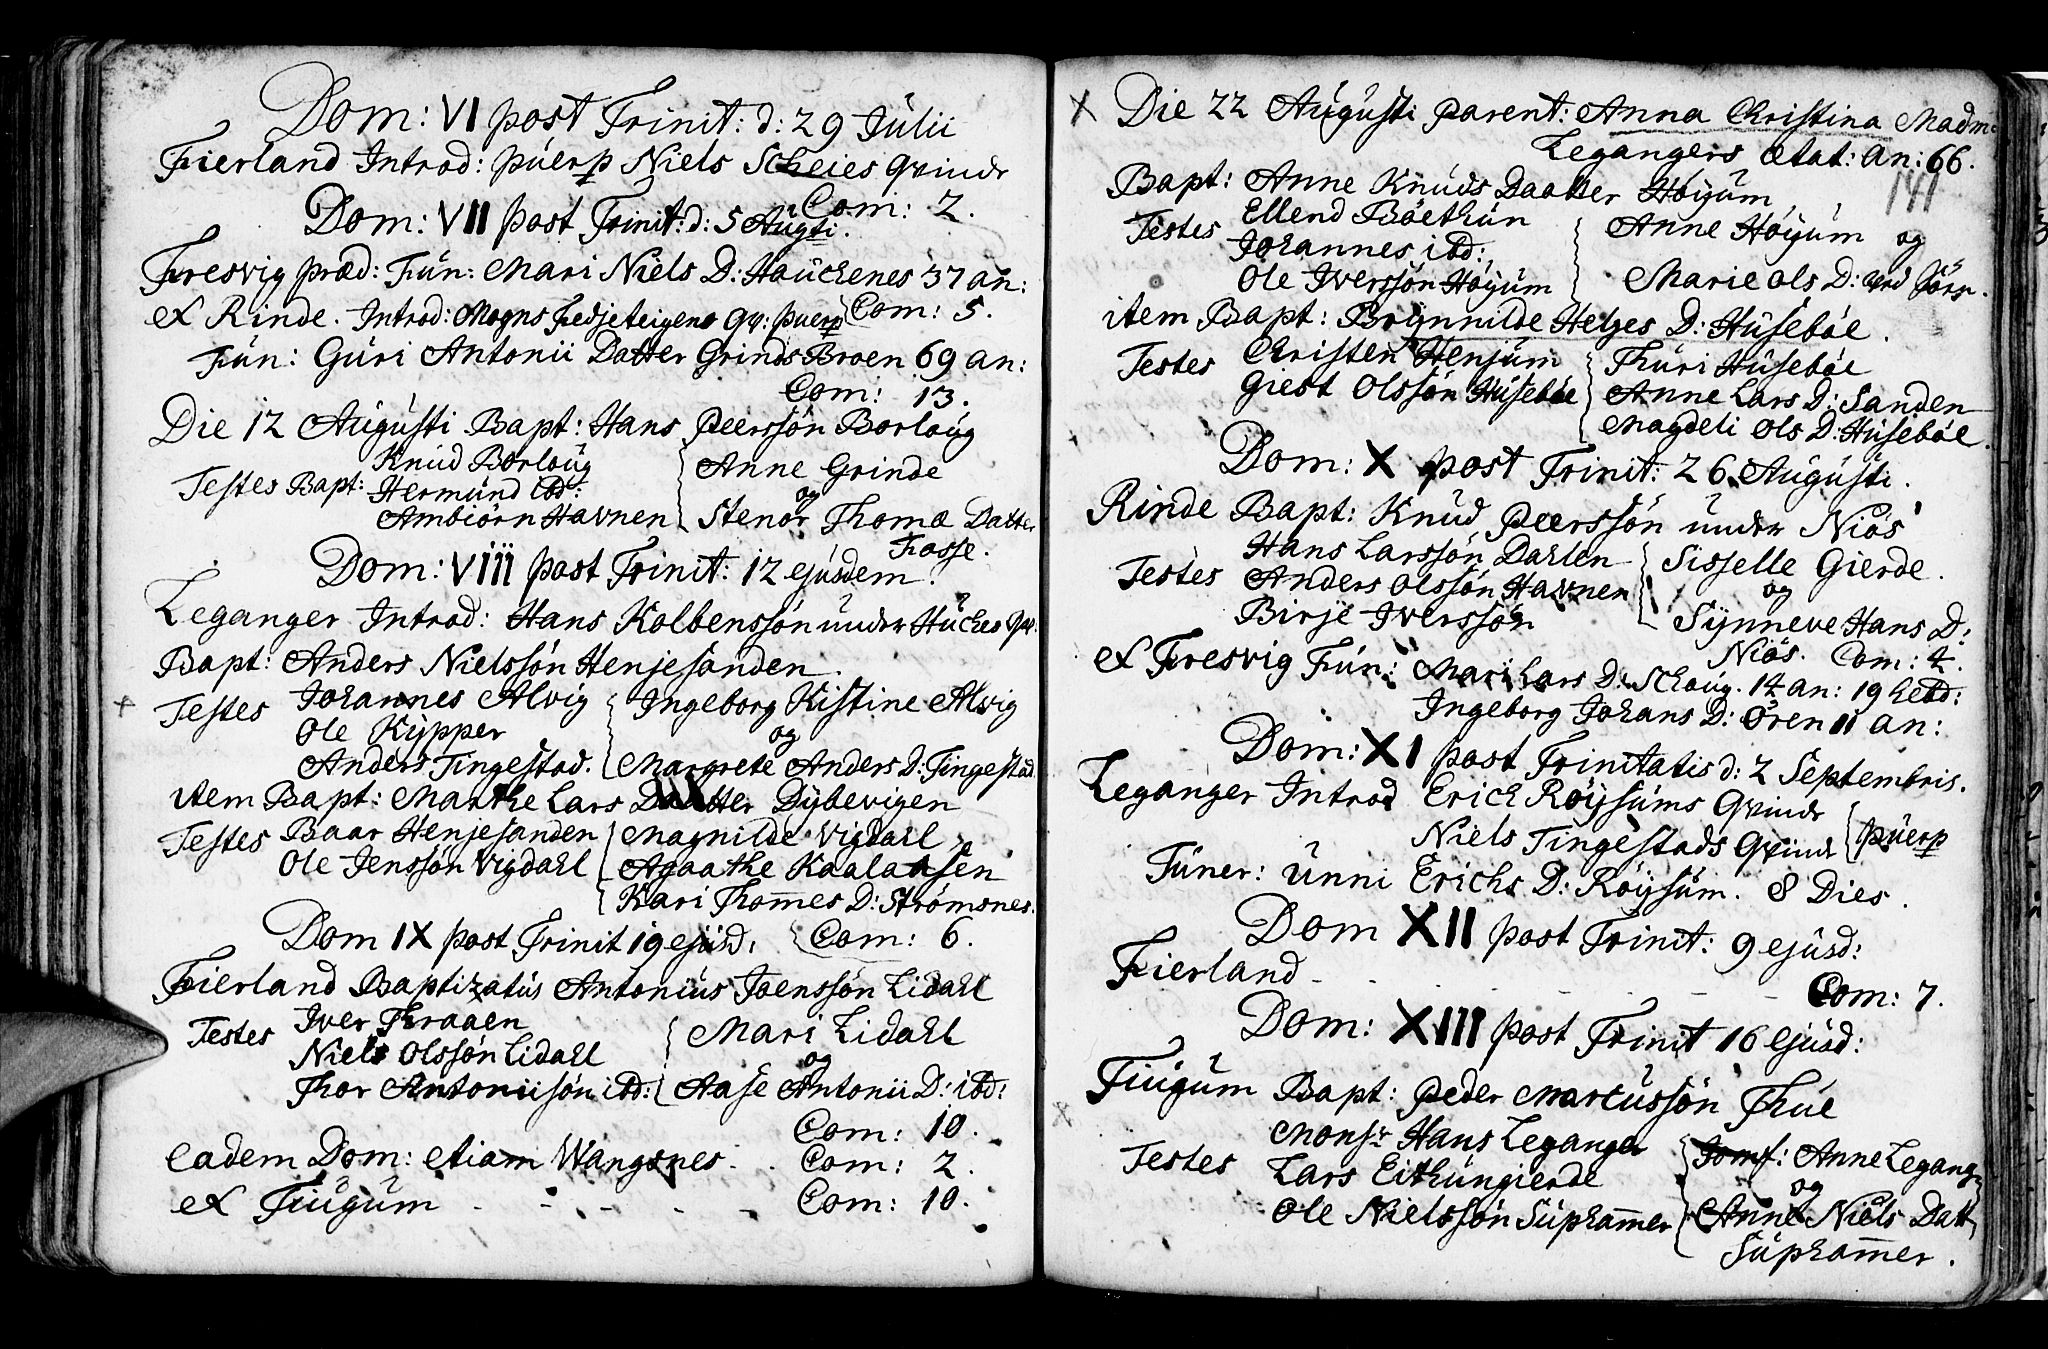 Dom: VI post Trinit: d: 29 Julii
Fierland Introd: puerp Niels Scheies qvinde
Com: 2.
Dom: VII post Trinit: d: 5 Augti.
Fresvig præd: Fun: Mari Niels D: Hauchenes 37 an:
ex Rinde. Introd: Mogns Fedjeteigens qv: puerp Com: 5.
Fun: Guri Antonii Datter Grinds Broen 69 an:
Com: 13.
Die 12 Augusti Bapt: Hans Peerssön Borloug
Testes Bapt: Knud Borloug
Hermund ibd:
Ambiörn Havnen
Anne Grinde
og
Stenor Thomæ Datter
Fosse.
Dom: VIII post Trinit: 12 ejusdem.
Leganger Introd: Hans Kolbenssön under Huches qv:
Bapt: Anders Nielssön Henjesanden.
Testes Johannes Alvig
Ole Kypper
Anders Tingestad.
Ingeborg Kistine Alvig
og
Margrete Anders D: Tingestad
item Bapt: Marthe Lars Datter Dybevigen
Testes Baar Henjesanden
Ole Jenssön Vigdahl
Magnilde Vigdahl
Agaathe Kaalaasen
Kari Thom̄es D: Strömsnes.
Dom IX post Trinit 19 ejusd: Com: 6.
Fierland Baptizatus Antonius Joenssön Lidahl
Testes Iver Thraaen
Niels Olssön Lidahl
Thor Antoniisön ibd:
Mari Lidahl
og
Aase Antonii D: ibd:
Com: 10.
Eadem Dom: etiam Wangsnes - . Com: 2.
ex Tiugum - - - - - Com: 10.
X Die 22 Augusti Parent: Anna Christina Madme
Legangers ætat: an: 66.
141
Bapt: Anne Knuds Daatter Höyum
Testes Ellend Böethun
Johannes ibd:
Ole Iverssön Höyum
Anne Höyum og
Marie Ols D: ved
item Bapt: Brynnilde Helges D: Huseböe.
Testes Christen Henjum
Giest Olssön Huseböe
Thuri Huseböe
Anne Lars D: Sanden
Magdeli Ols D: Huseböe.
Dom: X post Trinit: 26 Augusti.
Rinde Bapt: Knud Peerssön under Niös
Testes Hans Larssön Dahlen
Anders Olssön Havnen
Birje Iverssön
Sisselle Gierde.
og
Synneve Hans D:
Niös. Com: 4.
ex Fresvig Fun: Mari Lars D: Schoug. 14 an: 19 hebd:
Ingeborg Johans D: Ören 11 an:
Dom: XI post Trinitatis d: 2 Septembris.
Leganger Introd Erich Röysums qvinde
Niels Tingestads qvinde
puerp
Funer: Unni Erichs D: Röysum. 8 Dies.
Dom XII post Trinit: 9 ejusd:
Fierland - - - - - -
Com: 7.
Dom: XIII post Trinit 16 ejusd:
Tiugum Bapt: Peder Marcussön Thue
Testes Monsr Hans Leganger
Lars Eithungierde
Ole Nielssön Supham̄er
Jomf: Anne Legang
og
Anne Niels Datt
Supham̄er.